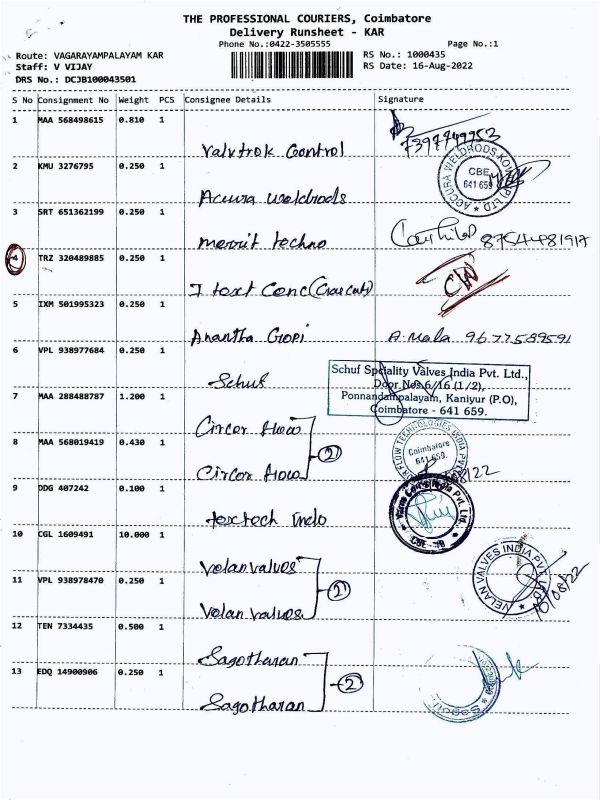 THE PROFESSIONAL COURIERS, Coimbatore
Delivery Runsheet - KAR
Phone No.:0422-3505555 Page No.:1
Route: VAGARAYAMPALAYAM KAR RS No.: 1000435
Staff: V VIJAY RS Date: 16-Aug-2022
DRS No.: DCJB100043501
S No Consignment No Weight PCS Consignee Details Signature
1 MAA 568498615 0.810 1
Valvtrok Control 7397749953
2 KMU 3276795 0.250 1
Accura weldrods ACCURA WELDRODS KOVAI (P) LTD CBE 641 659
3 SRT 651362199 0.250 1
merrit techno 8754481917
4 TRZ 320489885 0.250 1
5 IXM 501995323 0.250 1
Anantha Gopi A. Mala 9677589591
6 VPL 938977684 0.250 1
Schuf Schuf Speciality Valves India Pvt. Ltd.,
Door Nos.6/16 (1/2),
Ponnandampalayam, Kaniyur (P.O),
Coimbatore - 641 659.
7 MAA 288488787 1.200 1
Circor flow
8 MAA 568019419 0.430 1 (2)
Circor flow FLOW TECHNOLOGIES INDIA PVT Coimbatore 641 659.
9 DDG 407242 0.100 1
textech Indo India Pvt. Ltd.
10 CGL 1609491 10.000 1
Velan valves
11 VPL 938978470 0.250 1 (2)
Velan valves VELAN VALVES INDIA PVT
12 TEN 7334435 0.500 1
Sagotharan
13 EDQ 14900906 0.250 1 (2)
Sagotharan